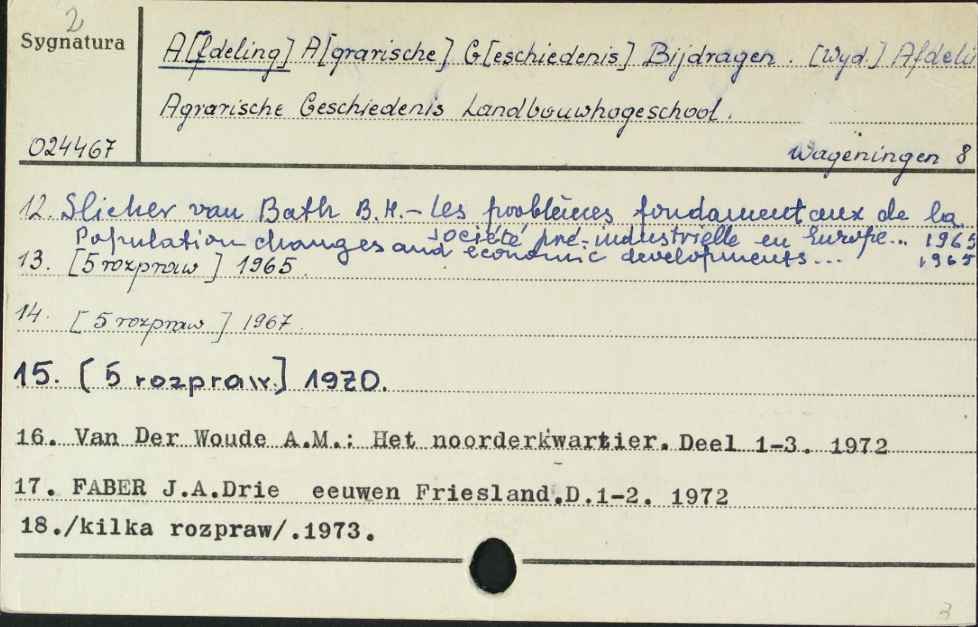 2
Sygnatura
A[fdeling] A[grarische] G[eschiedenis] Bijdragen. [Wyd.] Afdeli
Agrarische Geschiedenis Landbouwhogeschool.
024467
Wageningen 8
12. Slicher van Bath B.H. - Les problèmes fondamentaux de la
société pré-industrielle en Europe... 1965
Population changes and economic developments... 1965
13. [5 rozpraw] 1965
14. [5 rozpraw] 1967.
15. [5 rozpraw.] 1970.
16. Van Der Woude A.M.: Het noorderkwartier. Deel 1-3. 1972
17. FABER J.A.Drie eeuwen Friesland.D.1-2. 1972
18./kilka rozpraw/.1973.
3